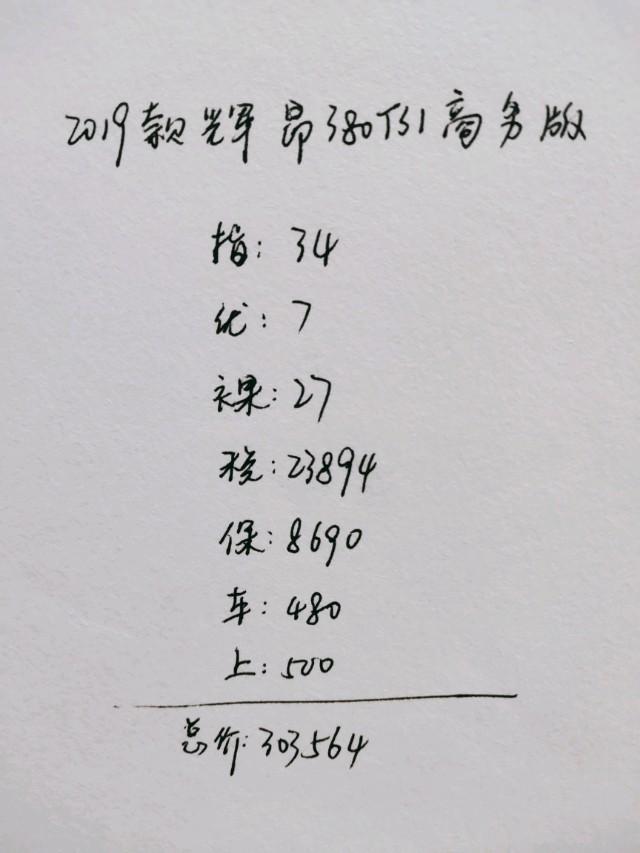 2019款辉昂380TSI商务版
指: 34
优: 7
裸: 27
税: 23894
保: 8690
车: 480
上: 500
总价: 303564